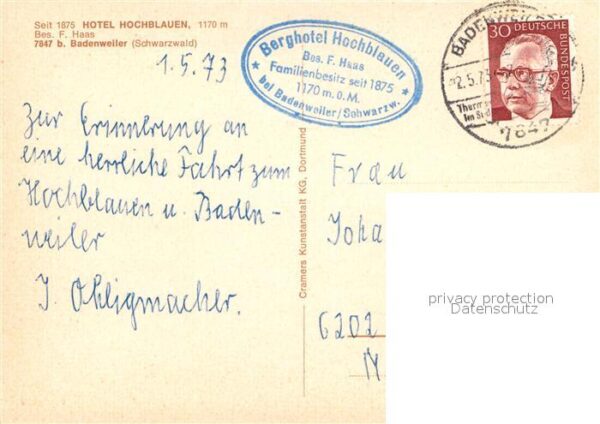 Seit 1875 HOTEL HOCHBLAUEN, 1170 m
Bes. F. Haas
7847 b. Badenweiler (Schwarzwald)
1.5.73
Zur Erinnerung an
eine herrliche Fahrt zum
Hochblauen u. Baden-
weiler
J. Ohligmacher.
Berghotel Hochblauen
Bes. F. Haas
Familienbesitz seit 1875
1170 m. ü. M.
bei Badenweiler/Schwarzw.
Cramers Kunstanstalt KG, Dortmund
BADENWEILER
2.5.73
Therm
im Süd
7847
30 DEUTSCHE BUNDESPOST
Frau
Joha
6202
privacy protection
Datenschutz